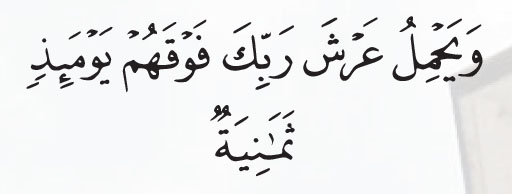 وَيَحْمِلُ عَرْشَ رَبِّكَ فَوْقَهُمْ يَوْمَئِذٍ
ثَمَٰنِيَةٌ